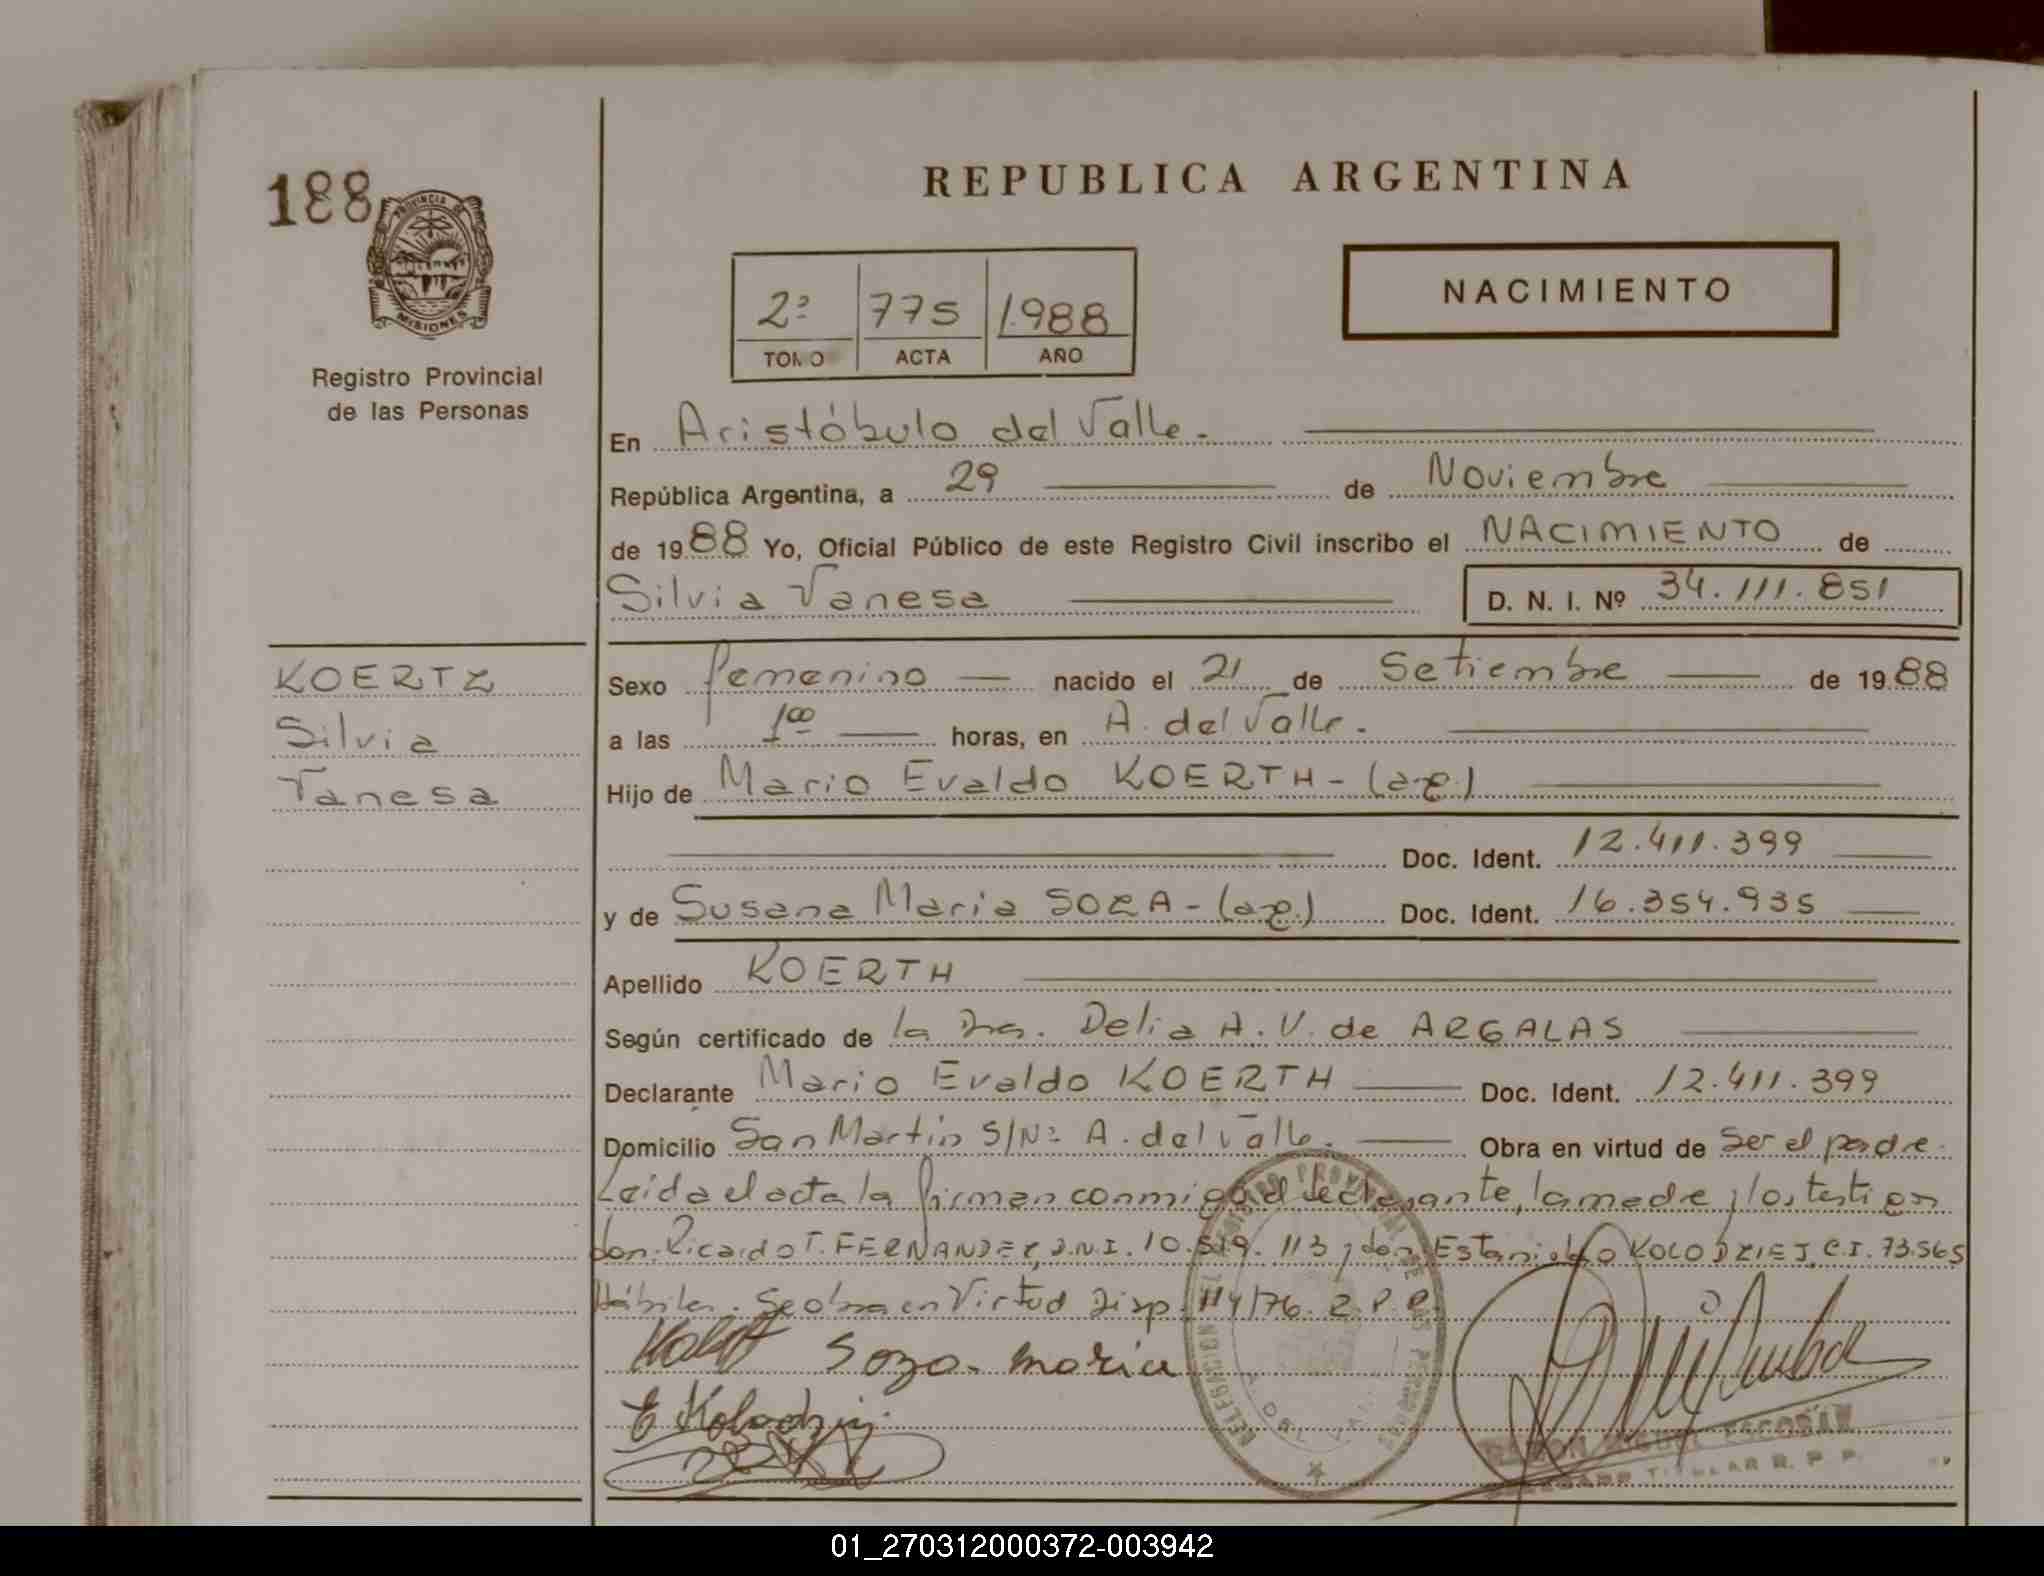 188
PROVINCIA DE
MISIONES
Registro Provincial
de las Personas
REPUBLICA ARGENTINA
2º 775 1.988
TOMO ACTA AÑO
NACIMIENTO
En Aristóbulo del Valle.
República Argentina, a 29 de Noviembre
de 1988 Yo, Oficial Público de este Registro Civil inscribo el NACIMIENTO de
Silvia Vanesa D. N. I. Nº 34.111.851
KOERTZ
Silvia
Vanesa
Sexo femenino nacido el 21 de Setiembre de 1988
a las 100 horas, en A. del Valle.
Hijo de Mario Evaldo KOERTH - (arg.)
Doc. Ident. 12.411.399
y de Susana Maria SOZA - (arg.) Doc. Ident. 16.354.935
Apellido KOERTH
Según certificado de la Dra. Delia A. V. de ARGALAS
Declarante Mario Evaldo KOERTH Doc. Ident. 12.411.399
Domicilio San Martin S/Nº A. del Valle. Obra en virtud de Ser el padre.
Leida el acta la firman conmigo el declarante, la madre y los testigos
don: Ricardo T. FERNANDEZ, D.N.I. 10.519.113 y don Estanislao KOLODZIEJ, C.I. 73.565
Hábiles. Se obra en Virtud Disp. 114/76. R.P.P.
Soza. Maria
E Kolodziej
DELEGACION DEL REGISTRO PROVINCIAL DE LAS PERSONAS
A. DEL VALLE
RAMON MIGUEL ESCOBAR
DELEGADO TITULAR R. P. P.
01_270312000372-003942